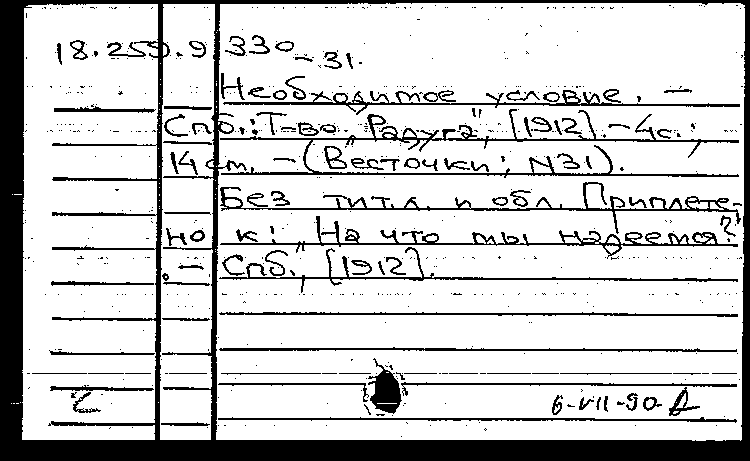 18.259.9.330-31.
Необходимое условие. —
Спб.: Т-во „Радуга", [1912]. - 4с.;
14 cm. - (Весточки; N31).
Без тит.л. и обл. Приплете-
но к: „На что мы надеемся?"
. - Спб., [1912].
2
6-VII-90-